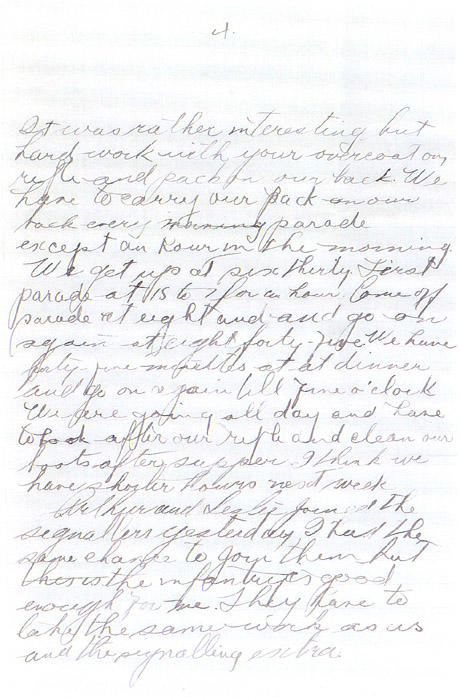 4.
It was rather interesting but
hard work with your overcoat on
rifle and pack on our back. We
have to carry our pack on our
back every morning parade
except an hour in the morning.
We get up at six thirty. First
parade at 15 to 7 for an hour. Come off
parade at eight and and go on
again at eight forty-five We have
forty-five minutes at at dinner
and go on again till five o'clock
We are going all day and have
to look after our rifle and clean our
boots after supper. I think we
have shorter hours next week
Arthur and Leslie joined the
signallers yesterday. I had the
same chance to join them but
the infantry is good
enough for me. They have to
take the same work as us
and the signalling extra.